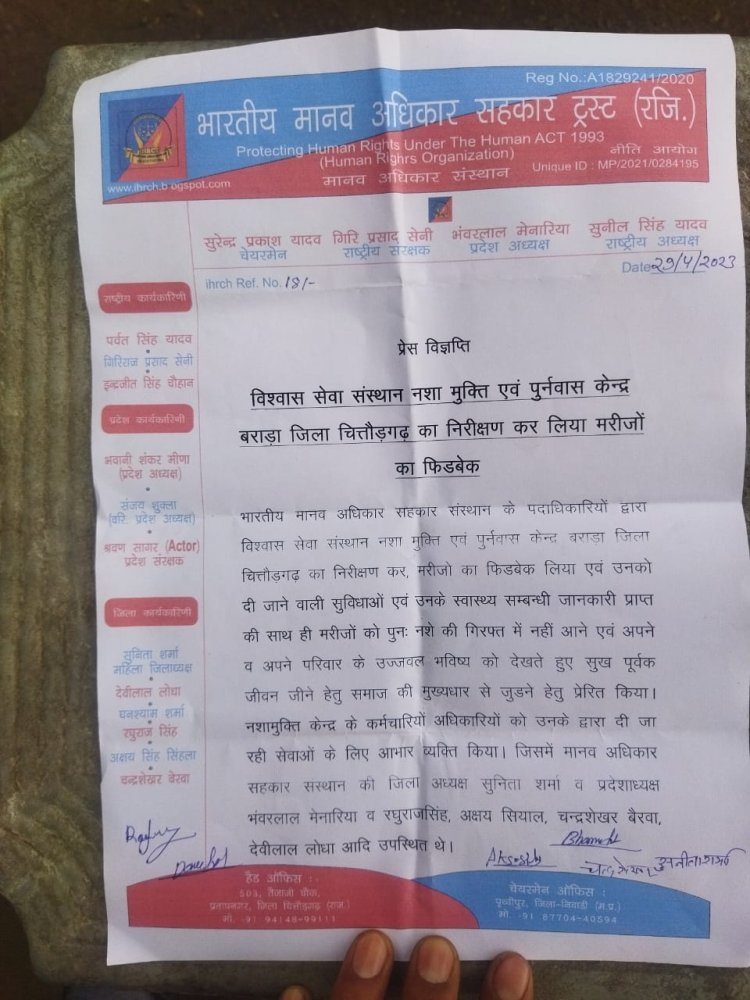 Reg No.:A1829241/2020
भारतीय मानव अधिकार सहकार ट्रस्ट (रजि.)
Protecting Human Rights Under The Human ACT 1993
(Human Righrs Organization)
नीति आयोग
मानव अधिकार संस्थान
Unique ID : MP/2021/0284195
www.ihrch.blogspot.com
सुरेन्द्र प्रकाश यादव गिरि प्रसाद सेनी भंवरलाल मेनारिया सुनील सिंह यादव
चेयरमेन राष्ट्रीय संरक्षक प्रदेश अध्यक्ष राष्ट्रीय अध्यक्ष
ihrch Ref. No. 18/-
Date 29/4/2023
राष्ट्रीय कार्यकारिणी
पर्वत सिंह यादव
गिरिराज प्रसाद सेनी
इन्द्रजीत सिंह चौहान
प्रदेश कार्यकारिणी
भवानी शंकर मीणा
(प्रदेश अध्यक्ष)
संजय शुक्ला
(वरि. प्रदेश अध्यक्ष)
श्रवण सागर (Actor)
प्रदेश संरक्षक
जिला कार्यकारिणी
सुनिता शर्मा
महिला जिलाध्यक्ष
देवीलाल लोधा
घनश्याम शर्मा
रघुराज सिंह
अक्षय सिंह सिंहला
चन्द्रशेखर बेरवा
प्रेस विज्ञप्ति
विश्वास सेवा संस्थान नशा मुक्ति एवं पुर्नवास केन्द्र
बराड़ा जिला चित्तौड़गढ़ का निरीक्षण कर लिया मरीजों
का फिडबेक
भारतीय मानव अधिकार सहकार संस्थान के पदाधिकारियों द्वारा
विश्वास सेवा संस्थान नशा मुक्ति एवं पुर्नवास केन्द बराड़ा जिला
चित्तौड़गढ़ का निरीक्षण कर, मरीजो का फिडबेक लिया एवं उनको
दी जाने वाली सुविधाओं एवं उनके स्वास्थ्य सम्बन्धी जानकारी प्राप्त
की साथ ही मरीजों को पुनः नशे की गिरफ्त में नहीं आने एवं अपने
व अपने परिवार के उज्जवल भविष्य को देखते हुए सुख पूर्वक
जीवन जीने हेतु समाज की मुख्यधार से जुडने हेतु प्रेरित किया।
नशामुक्ति केन्द्र के कर्मचारियों अधिकारियों को उनके द्वारा दी जा
रही सेवाओं के लिए आभार व्यक्ति किया। जिसमें मानव अधिकार
सहकार संस्थान की जिला अध्यक्ष सुनिता शर्मा व प्रदेशाध्यक्ष
भंवरलाल मेनारिया व रघुराजसिंह, अक्षय सियाल, चन्द्रशेखर बैरवा,
देवीलाल लोधा आदि उपस्थित थे।
हैड ऑफिस :-
503, तैजाजी चौक,
प्रतापनगर, जिला चित्तौड़गढ़ (राज.)
मो. -91 94148-99111
चेयरमेन ऑफिस :
पृथ्वीपुर, जिला-निवाडी (म.प्र.)
मो. -91 87704-40594